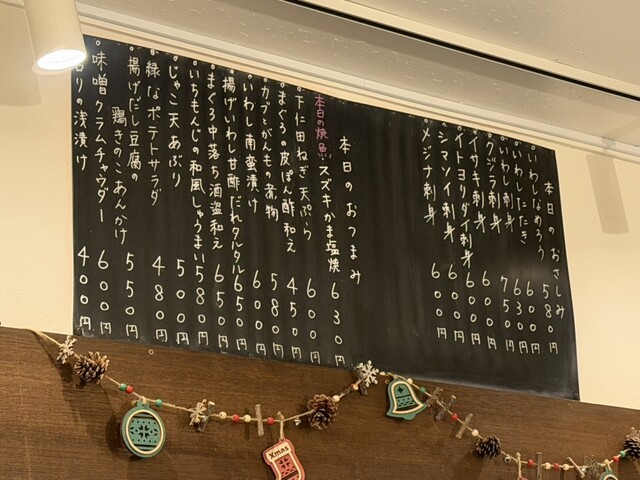 本日のおさしみ
いわしなめろう 580円
いわしたたき 600円
いわし刺身 630円
クジラ刺身 750円
イサキ刺身 600円
イトヨリダイ刺身 600円
シマソイ刺身 600円
メジナ刺身 600円
本日のおつまみ
本日の焼魚 スズキかま塩焼 630円
下仁田ねぎ天ぷら 600円
まぐろの皮ぽん酢和え 450円
カブとがんもの煮物 580円
いわし南蛮漬け 600円
揚げいわし甘酢だれタルタル 650円
まぐろ中落ち酒盗和え 650円
いちもんじの和風しゅうまい 580円
じゃこ天あぶり 500円
緑なポテトサラダ 480円
揚げだし豆腐の
鶏きのこあんかけ 550円
味噌クラムチャウダー 600円
の浅漬け 400円
Xmas